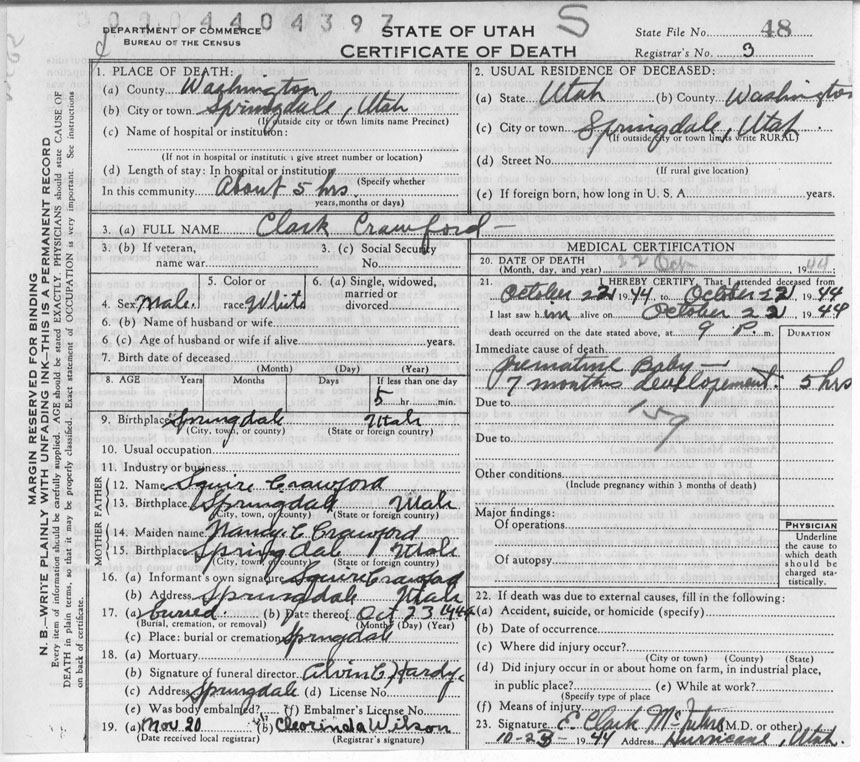 3004404397
DEPARTMENT OF COMMERCE
BUREAU OF THE CENSUS
STATE OF UTAH
CERTIFICATE OF DEATH
S
State File No. 48
Registrar's No. 3
MARGIN RESERVED FOR BINDING
N. B.—WRITE PLAINLY WITH UNFADING INK—THIS IS A PERMANENT RECORD
Every item of information should be carefully supplied. AGE should be stated EXACTLY. PHYSICIANS should state CAUSE OF
DEATH in plain terms, so that it may be properly classified. Exact statement of OCCUPATION is very important. See instructions
on back of certificate.
1. PLACE OF DEATH:
(a) County Washington
(b) City or town Springdale, Utah
(If outside city or town limits name Precinct)
(c) Name of hospital or institution:
(If not in hospital or institution give street number or location)
(d) Length of stay: In hospital or institution
(Specify whether
In this community About 5 hrs.
years, months or days)
2. USUAL RESIDENCE OF DECEASED:
(a) State Utah (b) County Washington
(c) City or town Springdale, Utah.
(If outside city or town limits write RURAL)
(d) Street No.
(If rural give location)
(e) If foreign born, how long in U. S. A. years.
3. (a) FULL NAME Clark Crawford —
3. (b) If veteran, name war
3. (c) Social Security No.
4. Sex Male.
5. Color or race White
6. (a) Single, widowed, married or divorced
6. (b) Name of husband or wife
6. (c) Age of husband or wife if alive years.
7. Birth date of deceased
(Month) (Day) (Year)
8. AGE Years Months Days If less than one day
5 hr. min.
9. Birthplace Springdale Utah
(City, town, or county) (State or foreign country)
10. Usual occupation
11. Industry or business
FATHER
12. Name Squire Crawford
13. Birthplace Springdale Utah
(City, town, or county) (State or foreign country)
MOTHER
14. Maiden name Nancy C Crawford
15. Birthplace Springdale Utah
(City, town, or county) (State or foreign country)
16. (a) Informant's own signature Squire Crawford
(b) Address Springdale Utah
17. (a) Buried. (b) Date thereof Oct 23 1944
(Burial, cremation, or removal) (Month) (Day) (Year)
(c) Place: burial or cremation Springdale
18. (a) Mortuary
(b) Signature of funeral director Alvin C Hardy.
(c) Address Springdale (d) License No.
(e) Was body embalmed? (f) Embalmer's License No.
19. (a) Nov. 20 (b) Cleorinda Wilson
(Date received local registrar) (Registrar's signature)
MEDICAL CERTIFICATION
20. DATE OF DEATH
(Month, day, and year) 22 Oct 1944
21. I HEREBY CERTIFY, That I attended deceased from
October 22 1944 to October 22 1944
I last saw him alive on October 22 1944
death occurred on the date stated above, at 9 P. m.
DURATION
Immediate cause of death
Premature Baby —
7 months developement. 5 hrs
Due to
159
Due to
Other conditions
(Include pregnancy within 3 months of death)
Major findings:
Of operations
Of autopsy
PHYSICIAN
Underline
the cause to
which death
should be
charged sta-
tistically.
22. If death was due to external causes, fill in the following:
(a) Accident, suicide, or homicide (specify)
(b) Date of occurrence
(c) Where did injury occur?
(City or town) (County) (State)
(d) Did injury occur in or about home on farm, in industrial place,
in public place? (e) While at work?
(Specify type of place)
(f) Means of injury
23. Signature E. Clark McIntire (M.D. or other)
10-23- 1944 Address Hurricane, Utah.